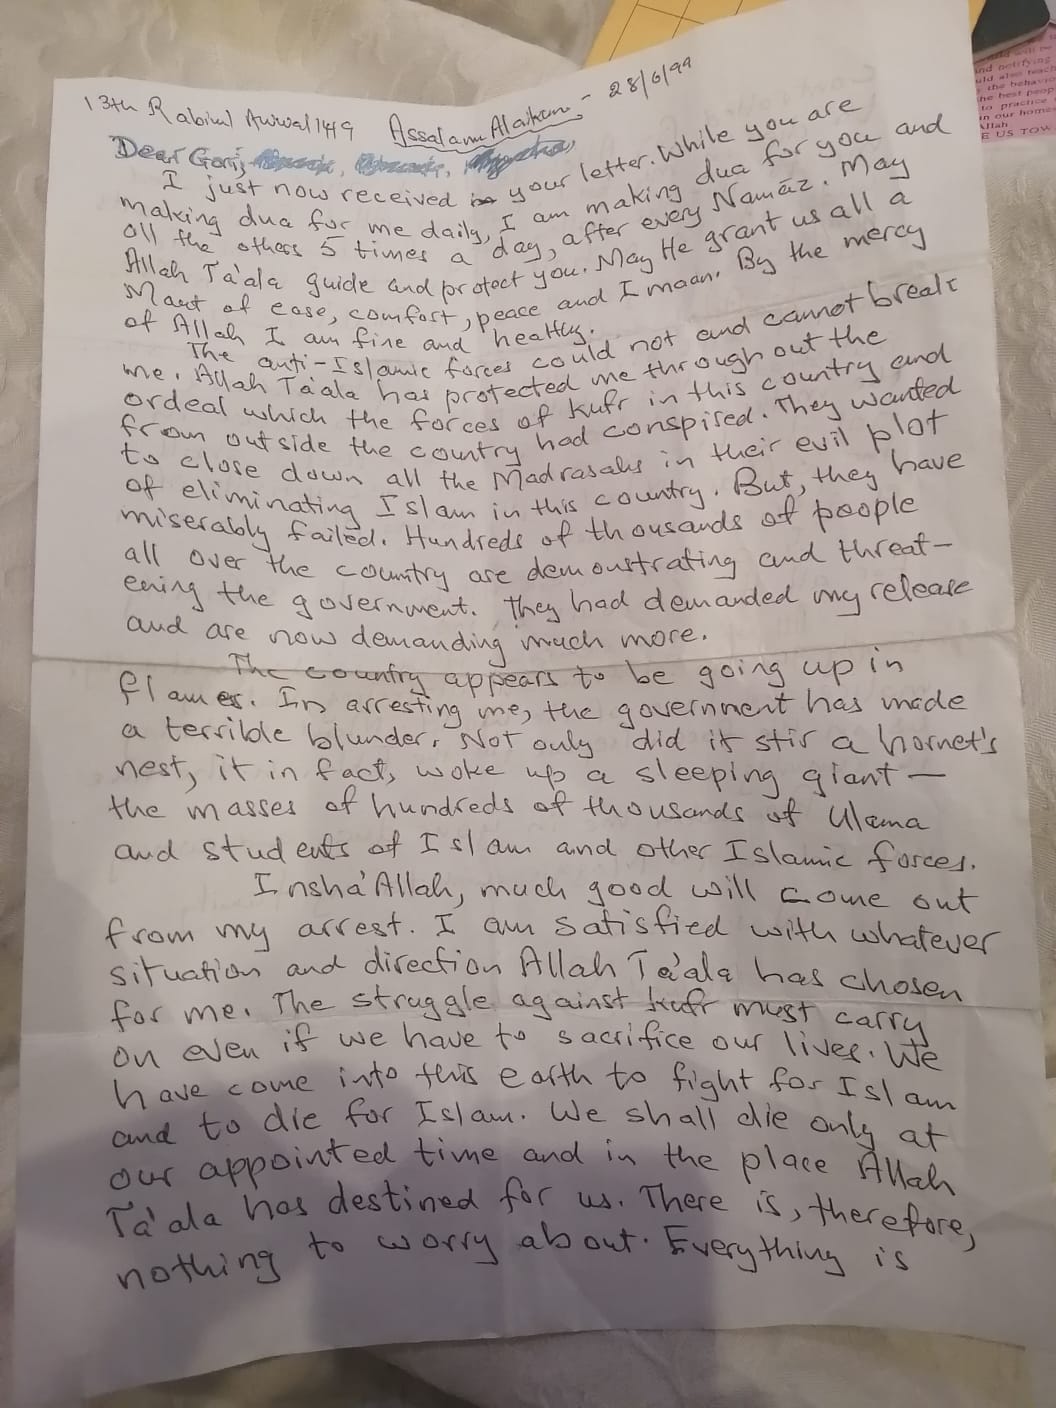 13th Rabiul Awwal 1419 Assalamu Alaikum - 28/6/99
Dear Gori,
I just now received your letter. While you are
making dua for me daily, I am making dua for you and
all the others 5 times a day, after every Namāz. May
Allah Ta'ala guide and protect you. May He grant us all a
Maut of ease, comfort, peace and Imaan. By the mercy
of Allah I am fine and healthy.
The anti-Islamic forces could not and cannot break
me. Allah Ta'ala has protected me throughout the
ordeal which the forces of kufr in this country and
from outside the country had conspired. They wanted
to close down all the Madrasahs in their evil plot
of eliminating Islam in this country. But, they have
miserably failed. Hundreds of thousands of people
all over the country are demonstrating and threat-
ening the government. They had demanded my release
and are now demanding much more.
The country appears to be going up in
flames. In arresting me, the government has made
a terrible blunder. Not only did it stir a hornet's
nest, it in fact, woke up a sleeping giant —
the masses of hundreds of thousands of Ulama
and students of Islam and other Islamic forces.
Insha'Allah, much good will come out
from my arrest. I am satisfied with whatever
situation and direction Allah Ta'ala has chosen
for me. The struggle against kufr must carry
on even if we have to sacrifice our lives. We
have come into this earth to fight for Islam
and to die for Islam. We shall die only at
our appointed time and in the place Allah
Ta'ala has destined for us. There is, therefore,
nothing to worry about. Everything is
and notifying
the behavio
the best peop
to practice
in our home
Allah
E US TOW